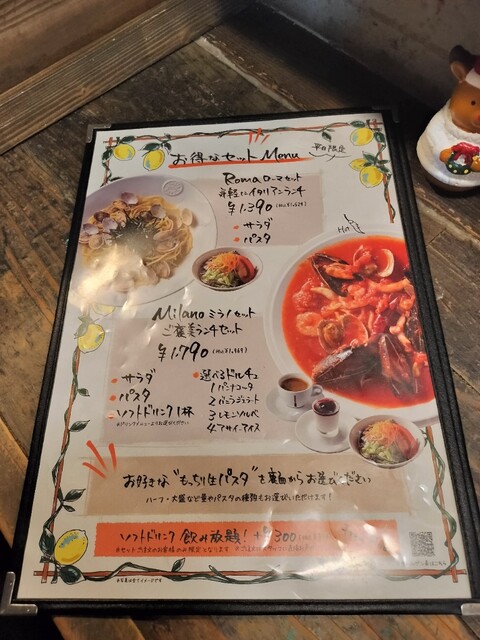 お得なセット Menu
平日限定
Roma ローマセット
手軽にイタリアンランチ
¥1.390
サラダ
パスタ
Hot
Milano ミラノセット
ご褒美ランチセット
¥1.790
サラダ
パスタ
ソフトドリンク1杯
選べるドルチェ
1 パンナコッタ
2 バニラジェラート
3 レモンソルベ
4 アサイーアイス
お好きな"もっちり生パスタ"を裏面からお選びください
ハーフ・大盛など量やパスタの種類もお選びいただけます!
ソフトドリンク 飲み放題! +¥300
※セットご注文のお客様のみ限定となります